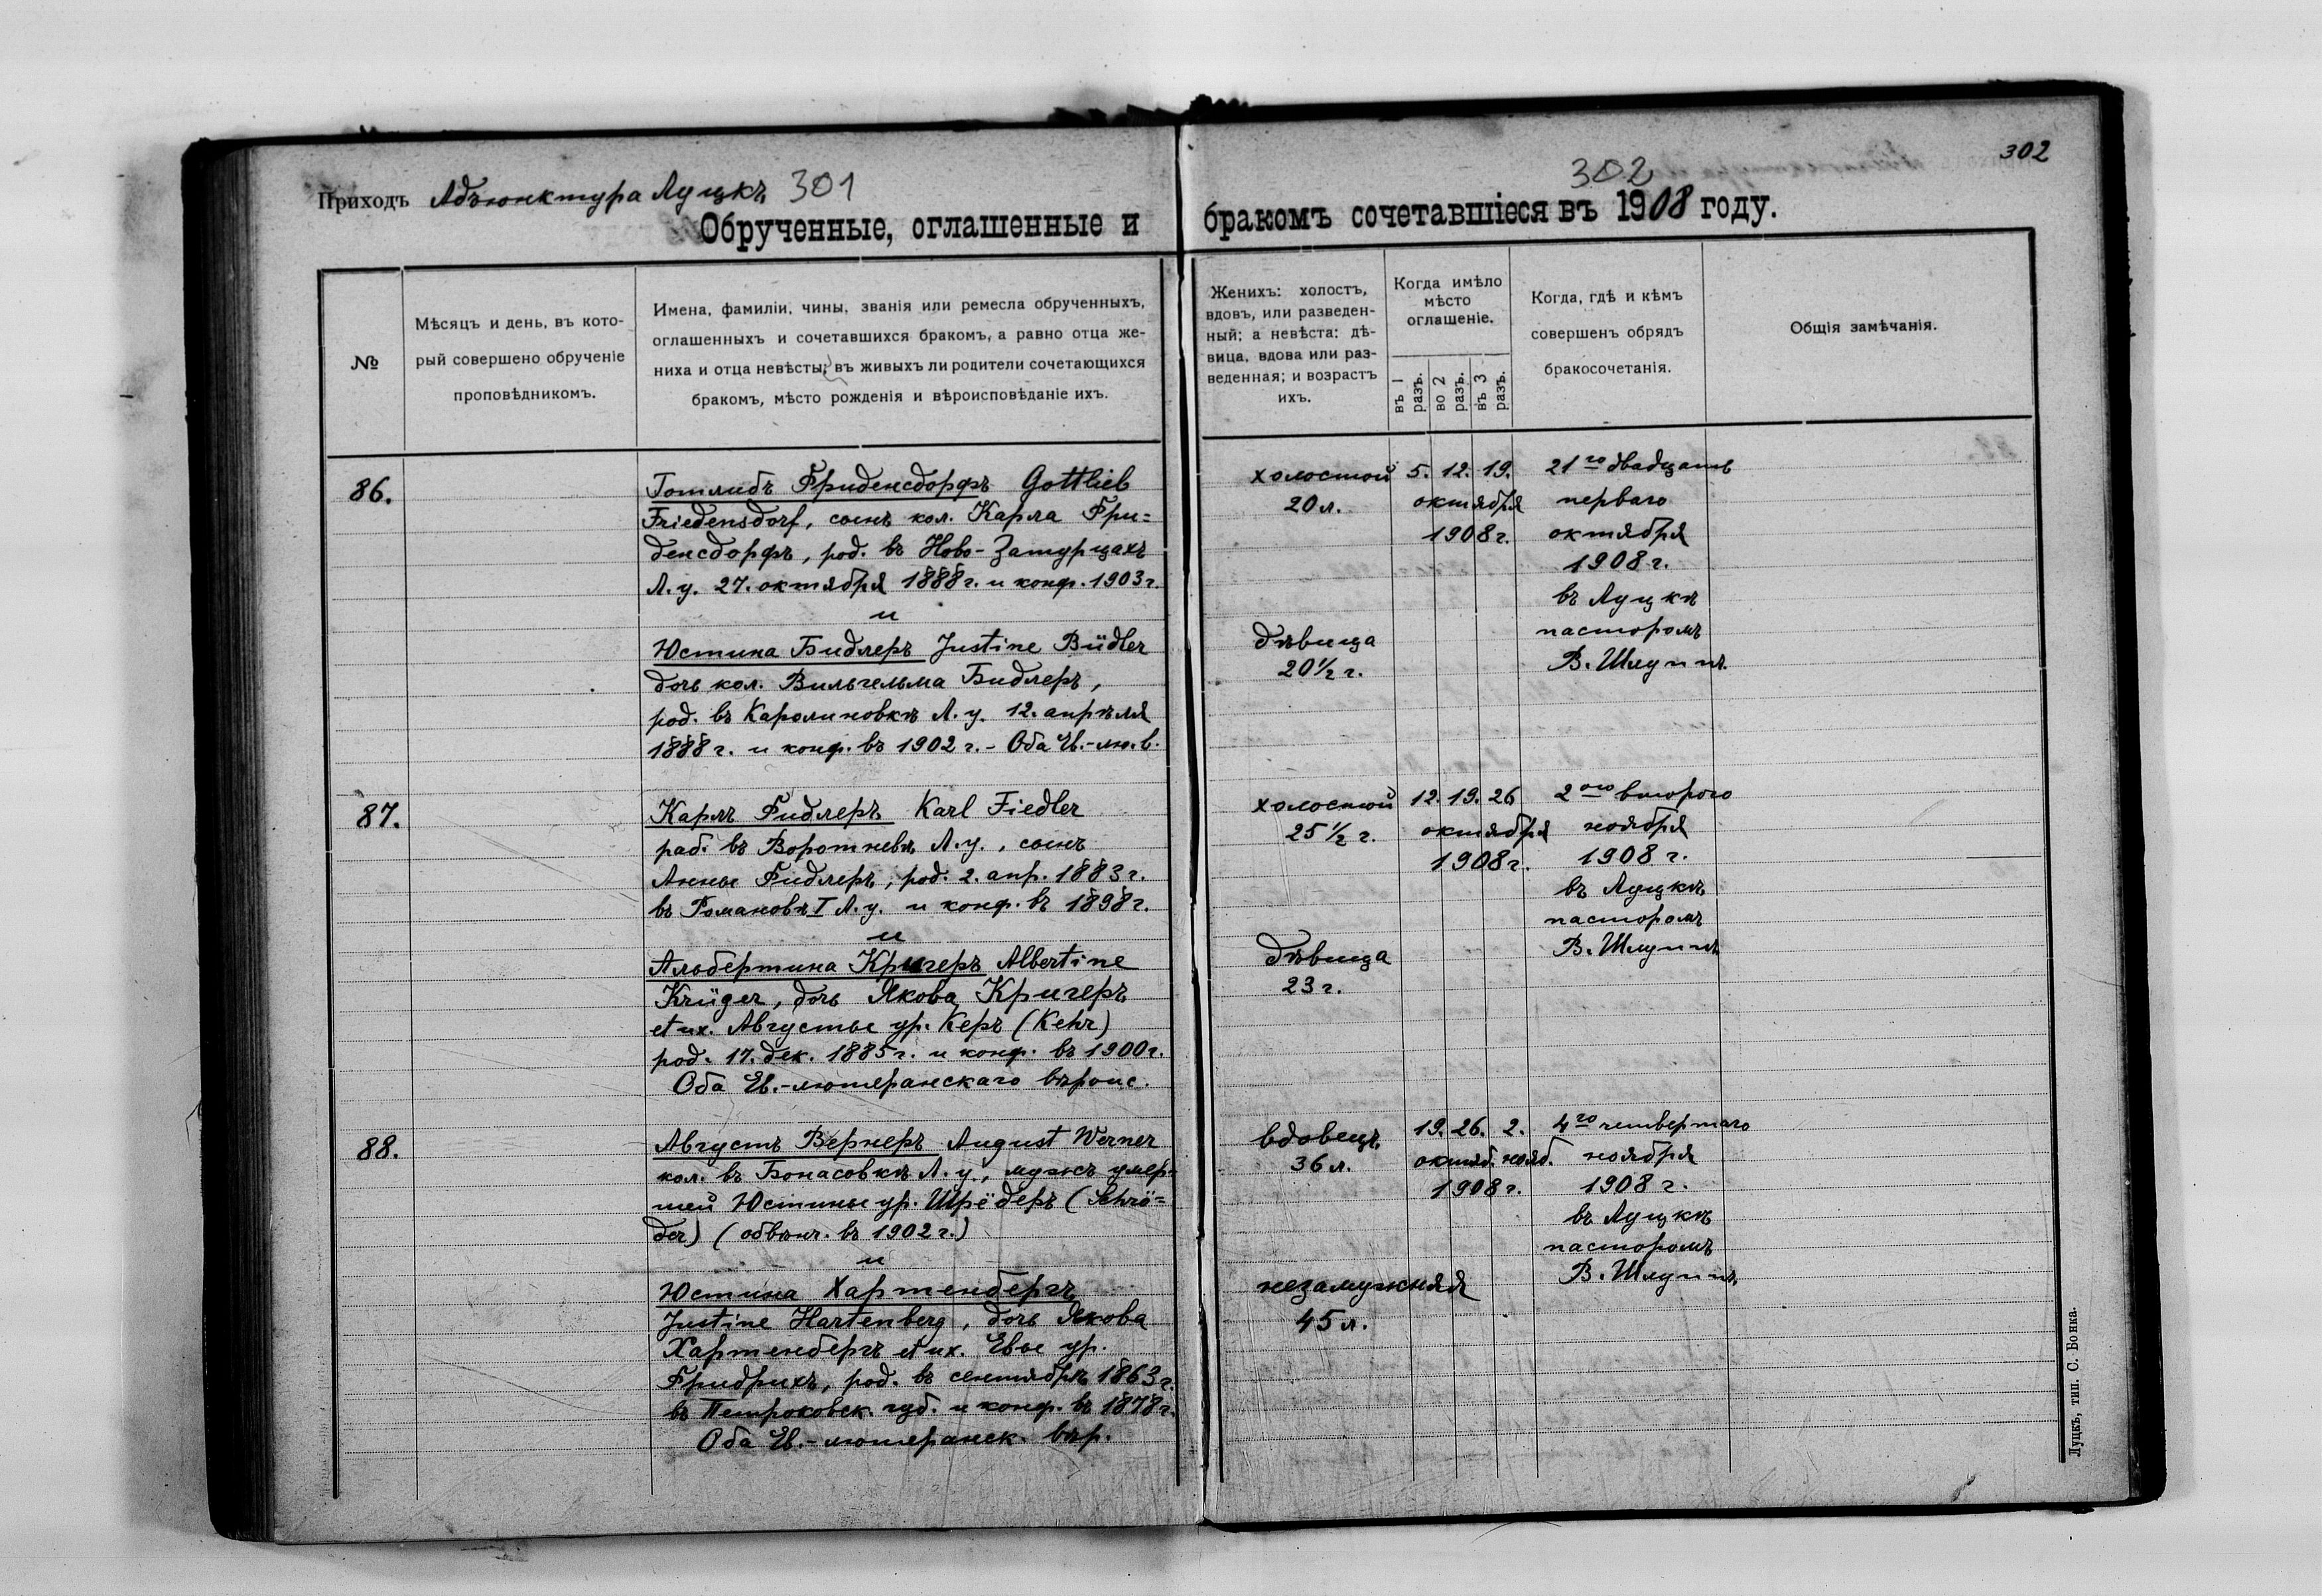 Приходъ Адъюнктура Луцкъ 301
Обрученные, оглашенные и
№
Мѣсяцъ и день, въ кото-
рый совершено обрученіе
проповѣдникомъ.
Имена, фамиліи, чины, званія или ремесла обрученныхъ,
оглашенныхъ и сочетавшихся бракомъ, а равно отца же-
ниха и отца невѣсты; въ живыхъ ли родители сочетающихся
бракомъ, мѣсто рожденія и вѣроисповѣданіе ихъ.
86.
Готлибъ Фриденсдорфъ Gottlieb
Friedensdorf, сынъ кол. Карла Фри=
денсдорфъ, род. въ Ново-Затурцахъ
Л. у. 27. октября 1888 г. и конф. 1903 г.
и
Юстина Бидлеръ Justine Büdler
дочь кол. Вильгельма Бидлеръ,
род. въ Каролиновкѣ Л. у. 12. апрѣля
1888 г. и конф. въ 1902 г. - Оба Ев.-лю. в.
87.
Карлъ Фидлеръ Karl Fiedler
раб. въ Воротневѣ Л. у., сынъ
Анны Фидлеръ, род. 2. апр. 1883 г.
въ Романовѣ I Л. у. и конф. въ 1898 г.
и
Альбертина Кригеръ Albertine
Krüger, дочь Якова Кригеръ
et ux. Августы ур. Керъ (Kehr)
род. 17. дек. 1885 г. и конф. въ 1900 г.
Оба Ев.-лютеранскаго вѣроис.
88.
Августъ Вернеръ August Werner
кол. въ Бонасовкѣ Л. у., мужъ умер=
шей Юстины ур. Шрёдеръ (Schrö=
der) (обвѣнч. въ 1902 г.)
и
Юстина Хартенбергъ
Justine Hartenberg, дочь Якова
Хартенбергъ et ux. Евы ур.
Фридрихъ, род. въ сентябрѣ 1863 г.
въ Петроковск. губ. и конф. въ 1878 г.
Оба Ев.-лютеранск. вѣр.
302
302
бракомъ сочетавшіеся въ 1908 году.
Женихъ: холостъ,
вдовъ, или разведен-
ный; а невѣста: дѣ-
вица, вдова или раз-
веденная; и возрастъ
ихъ.
Когда имѣло
мѣсто
оглашеніе.
въ 1 разъ.
во 2 разъ.
въ 3 разъ.
Когда, гдѣ и кѣмъ
совершенъ обрядъ
бракосочетанія.
Общія замѣчанія.
холостой
20 л.
5. 12. 19.
октября
1908 г.
21го двадцать
перваго
октября
1908 г.
въ Луцкѣ
пасторомъ
В. Шлуппъ.
дѣвица
20 1/2 г.
холостой
25 1/2 г.
12. 19. 26
октября
1908 г.
2ого второго
ноября
1908 г.
въ Луцкѣ
пасторомъ
В. Шлуппъ.
дѣвица
23 г.
вдовецъ
36 л.
19. 26. 2.
октяб. нояб.
1908 г.
4го четвертаго
ноября
1908 г.
въ Луцкѣ
пасторомъ
В. Шлуппъ.
незамужняя
45 л.
Луцкъ, тип. С. Бонка.